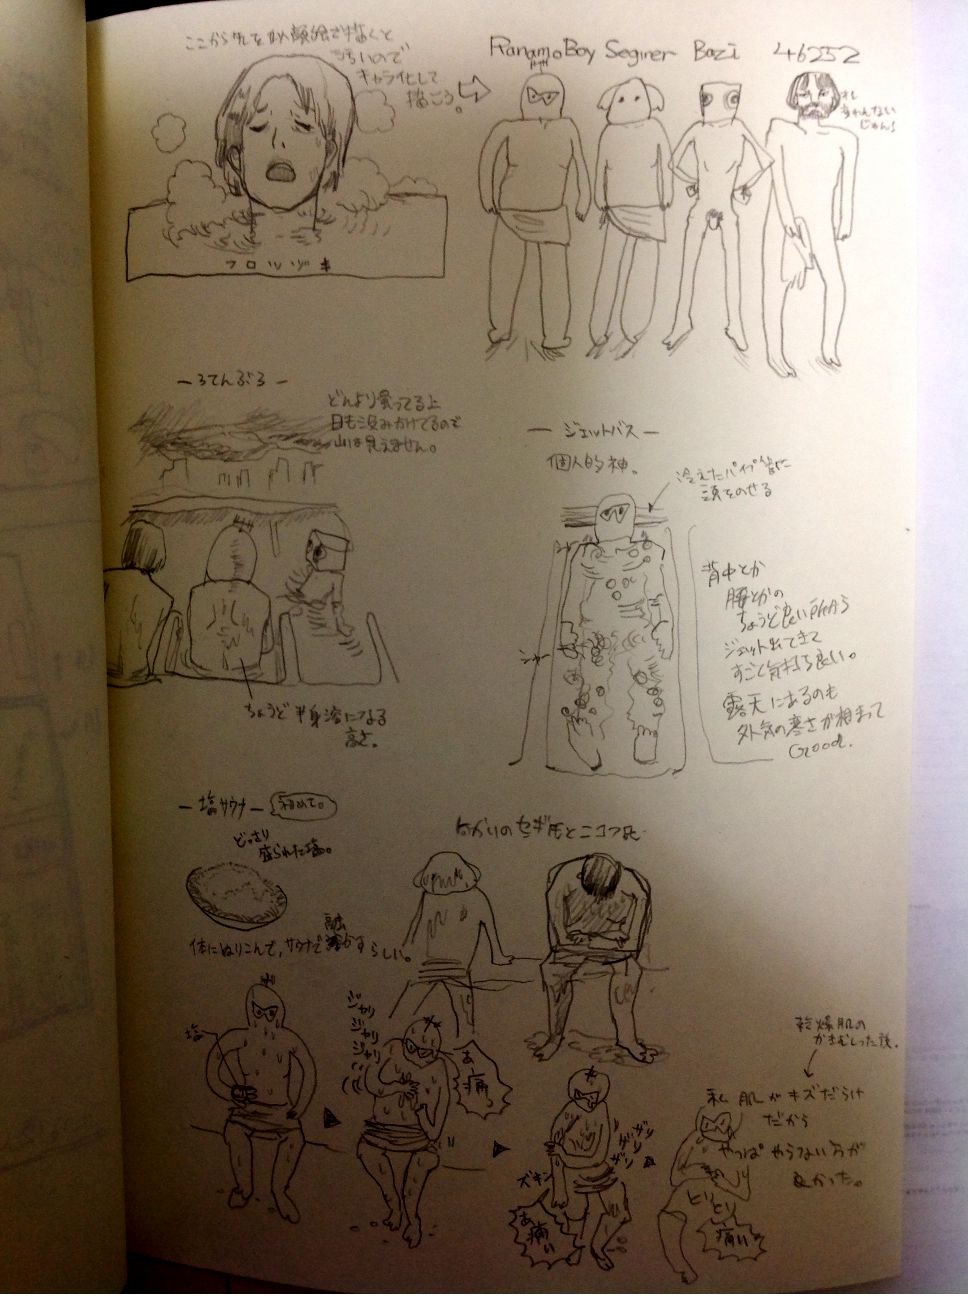 ここから先を
描くと
ので
キャラ化して
描こう。
RanamoBoy Seginer Bozi 46252
オレ
かわんない
じゃん!
フロツヅキ
ーろてんぶろー
どんより曇ってる上
日も没みかけてるので
山は見えません。
ちょうど半身浴になる
高さ。
ージェットバスー
個人的神。
冷えたパイプ部に
頭をのせる
背中とか
腰とかの
ちょうど良い所から
ジェット出てきて
すごく気持ち良い。
露天にあるのも
外気の寒さが相まって
Good.
ー塩サウナー 初めて。
どっさり
盛られた塩。
体にぬりこんで、サウナで溶かすらしい。
とニコフ氏
塩
ジャリ
ジャリ
ジャリ
あ〜
痛。
ズキン
ガリ
ガリ
ガリ
あ
痛い
乾燥肌の
かきむしった後。
私 肌がキズだらけ
だから
やっぱ やらない方が
良かった。
ヒリ
ヒリ
痛い